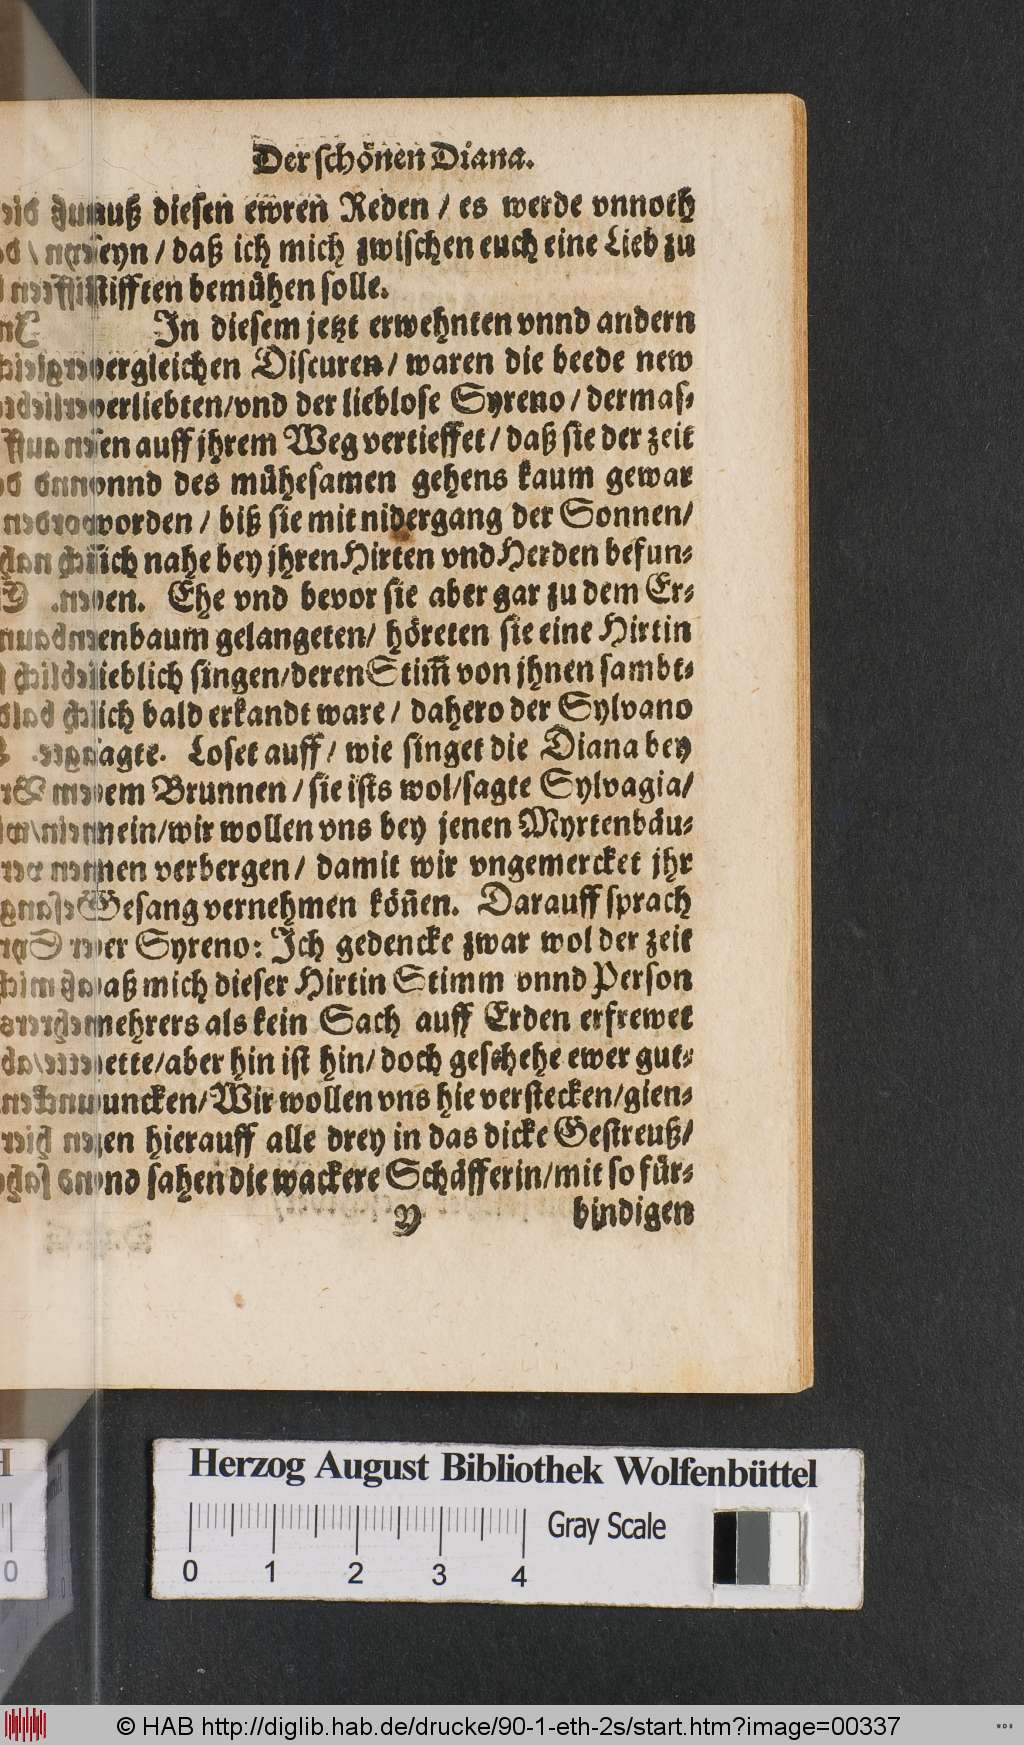 Der schönen Diana.
auß diesen ewren Reden / es werde vnnoth
seyn / daß ich mich zwischen euch eine Lieb zu
stifften bemühen solle.
In diesem jetzt erwehnten vnnd andern
vergleichen Discuren / waren die beede new
verliebten/vnd der lieblose Syreno / dermas-
sen auff jhrem Weg vertieffet / daß sie der zeit
vnnd des mühesamen gehens kaum gewar
worden / biß sie mit nidergang der Sonnen/
sich nahe bey jhren Hirten vnd Herden befun-
den. Ehe vnd bevor sie aber gar zu dem Er-
lenbaum gelangeten / höreten sie eine Hirtin
lieblich singen/deren Stim̃ von jhnen sambt-
lich bald erkandt ware / dahero der Sylvano
sagte. Loset auff / wie singet die Diana bey
dem Brunnen / sie ists wol/sagte Sylvagia/
nein/wir wollen vns bey jenen Myrtenbäu-
men verbergen / damit wir vngemercket jhr
Gesang vernehmen kön̄en. Darauff sprach
der Syreno: Ich gedencke zwar wol der zeit
daß mich dieser Hirtin Stimm vnnd Person
mehrers als kein Sach auff Erden erfrewet
hette/aber hin ist hin/ doch geschehe ewer gut-
duncken/Wir wollen vns hie verstecken/gien-
gen hierauff alle drey in das dicke Gestreuß/
vnd sahen die wackere Schäfferin/mit so für-
Y bindigen
Herzog August Bibliothek Wolfenbüttel
Gray Scale
0 1 2 3 4
0
© HAB http://diglib.hab.de/drucke/90-1-eth-2s/start.htm?image=00337